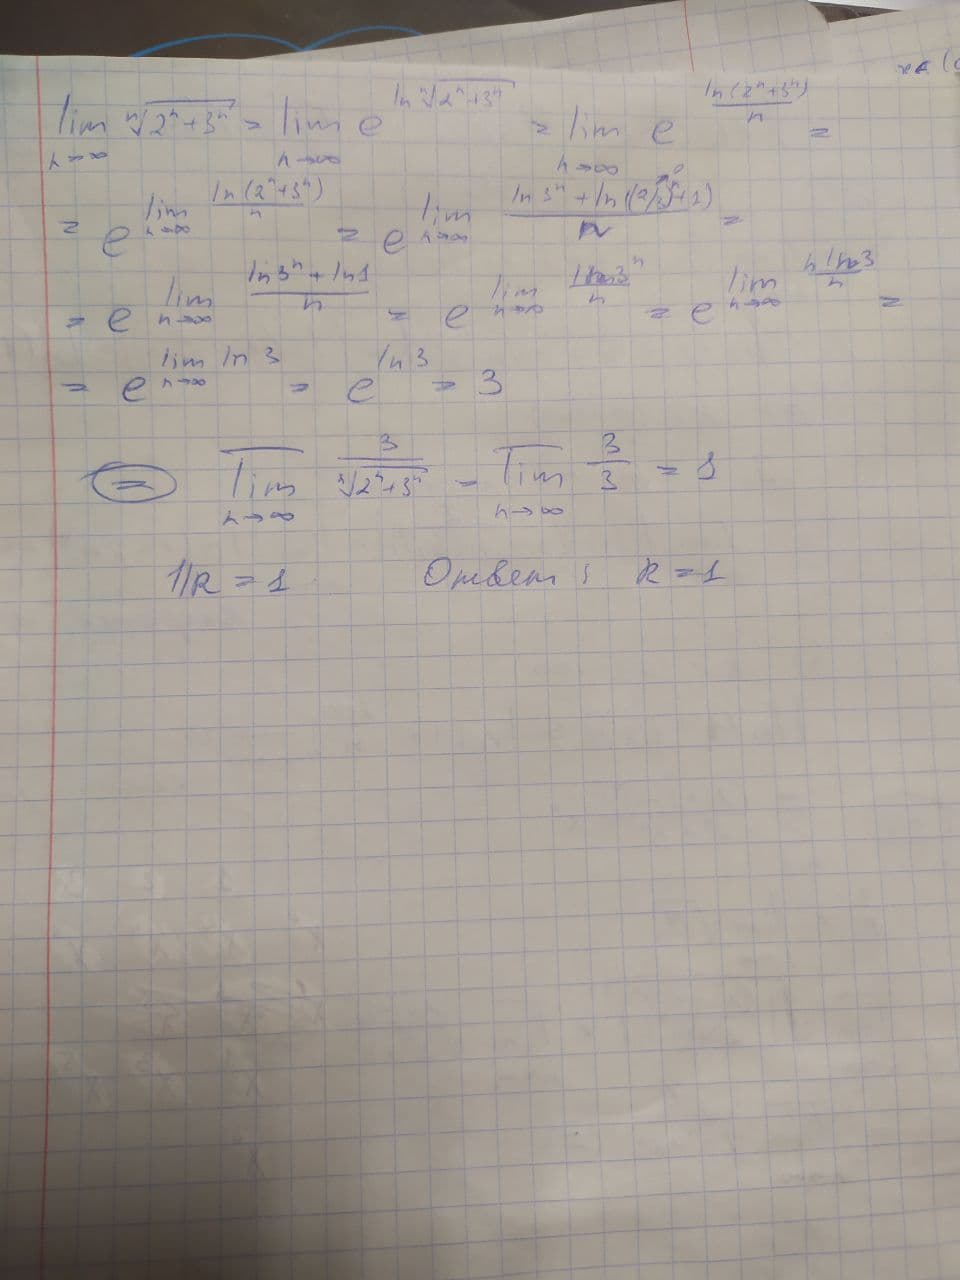 x ∈ (
lim n→∞ ⁿ√(2ⁿ+3ⁿ) = lim n→∞ e^(ln ⁿ√(2ⁿ+3ⁿ)) = lim n→∞ e^(ln(2ⁿ+3ⁿ)/n) =
= e^(lim n→∞ ln(2ⁿ+3ⁿ)/n) = e^(lim n→∞ (ln 3ⁿ + ln((2/3)ⁿ+1))/n) =
= e^(lim n→∞ (ln 3ⁿ + ln 1)/n) = e^(lim n→∞ ln 3ⁿ/n) = e^(lim n→∞ n ln 3/n) =
= e^(lim n→∞ ln 3) = e^(ln 3) = 3
= lim n→∞ 3/ⁿ√(2ⁿ+3ⁿ) = lim n→∞ 3/3 = 1
1/R = 1 Ответ: R = 1